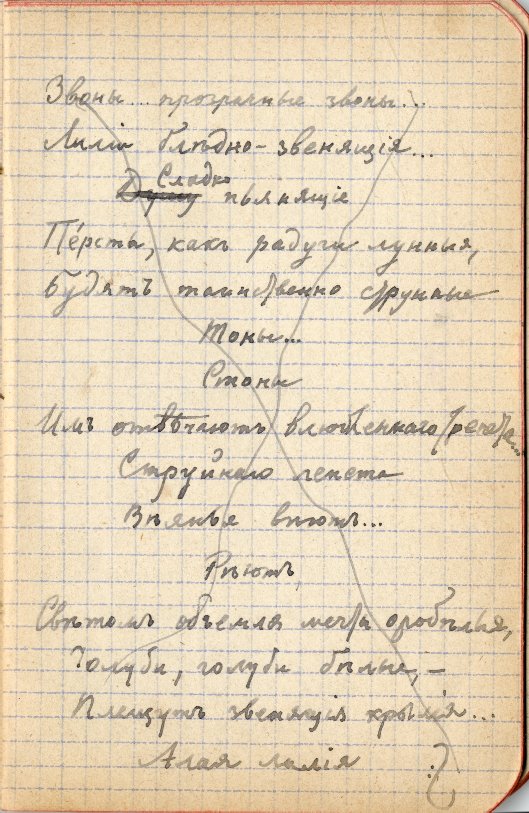 Звоны... прозрачные звоны...
Лиліи блѣдно-звенящія...
Душу Сладко пьянящіе
Пе́рсты, какъ радуги лунныя,
Будятъ таинственно струнные
Тоны...
Стоны
Имъ отвѣчаютъ влюбленнаго трепета...
Струйнаго лепета
Внѣ вьютъ...
Рѣютъ,
Свѣтомъ объемля мечты оробѣлыя,
Голуби, голуби бѣлые, –
Плещутъ звенящія крылія...
Алая лилія